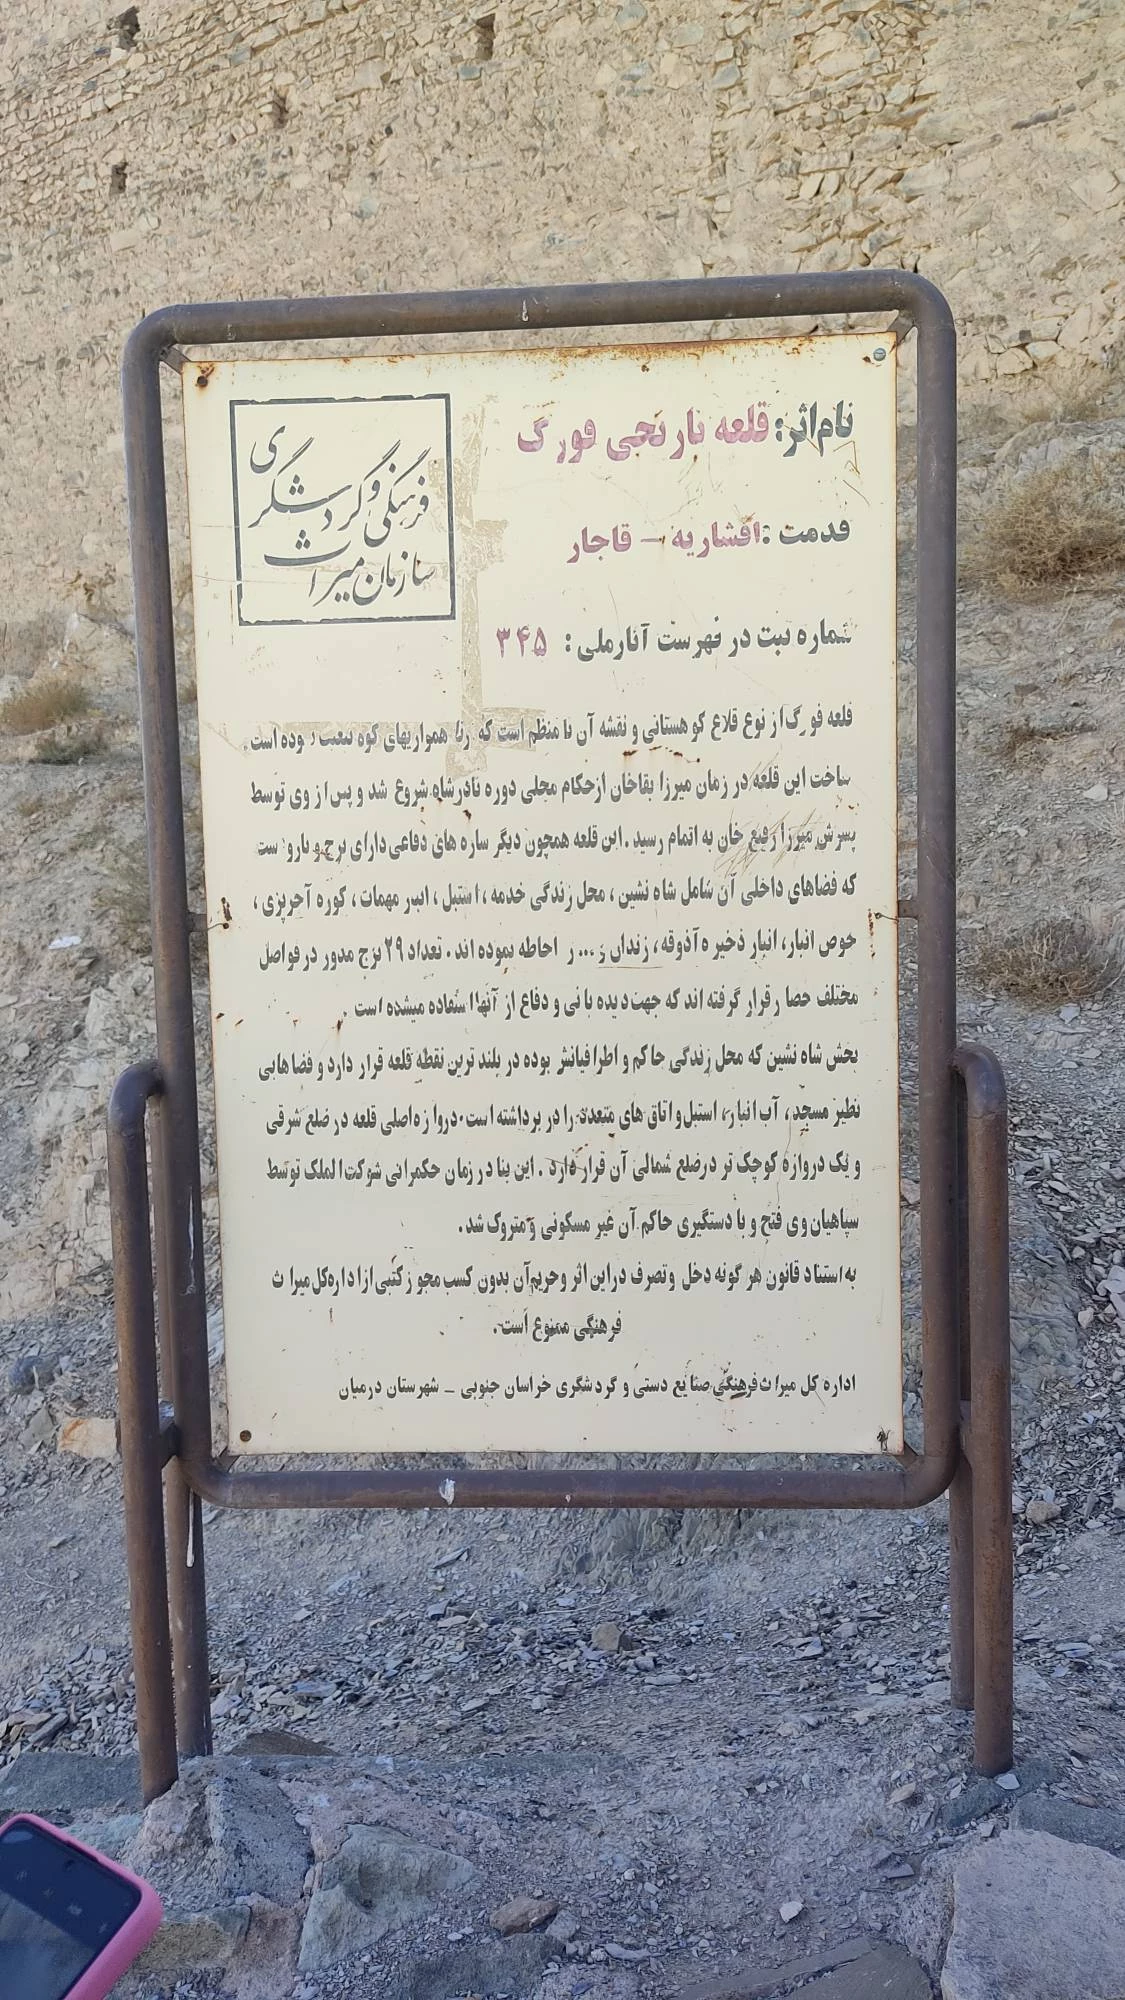 نام اثر: قلعه تاریخی فورگ
سازمان میراث
فرهنگی و گردشگری
قدمت: افشاریه – قاجار
شماره ثبت در فهرست آثار ملی: ۳۴۵
قلعه فورگ از نوع قلاع کوهستانی و نقشه آن نا منظم است که از نا همواریهای کوه تبعیت نموده است.
ساخت این قلعه در زمان میرزا بقاخان از حکام محلی دوره نادرشاه شروع شد و پس از وی توسط
پسرش میرزا رفیع خان به اتمام رسید. این قلعه همچون دیگر سازه های دفاعی دارای برج و بارو است
که فضاهای داخلی آن شامل شاه نشین، محل زندگی خدمه، استبل، انبار مهمات، کوره آجرپزی،
حوض انبار، انبار ذخیره آذوقه، زندان و ... را احاطه نموده اند. تعداد ۲۹ برج مدور در فواصل
مختلف حصار قرار گرفته اند که جهت دیده بانی و دفاع از آنها استفاده میشده است.
بخش شاه نشین که محل زندگی حاکم و اطرافیانش بوده در بلند ترین نقطه قلعه قرار دارد و فضاهایی
نظیر مسجد، آب انبار، استبل و اتاق های متعدد را در بر داشته است. دروازه اصلی قلعه در ضلع شرقی
و یک دروازه کوچک تر در ضلع شمالی آن قرار دارد. این بنا در زمان حکمرانی شوکت الملک توسط
سپاهیان وی فتح و با دستگیری حاکم آن غیر مسکونی و متروک شد.
به استناد قانون هر گونه دخل و تصرف در این اثر و حریم آن بدون کسب مجوز کتبی از اداره کل میراث
فرهنگی ممنوع است.
اداره کل میراث فرهنگی صنایع دستی و گردشگری خراسان جنوبی – شهرستان درمیان